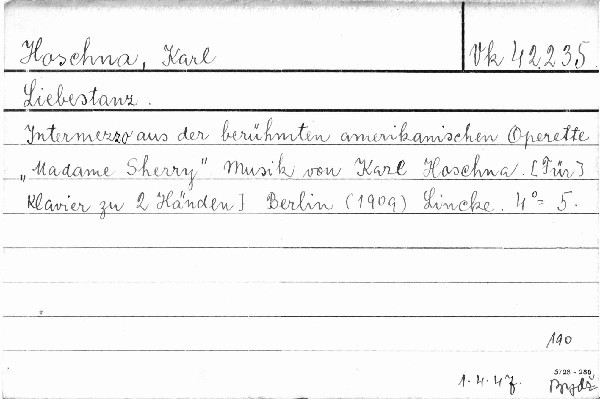 Hoschna, Karl
Vk 42.235
Liebestanz.
Intermezzo aus der berühmten amerikanischen Operette
„Madame Sherry" Musik von Karl Hoschna. [Für]
Klavier zu 2 Händen] Berlin (1909) Lincke. 4° = 5.
190
5728 - 286
1. 4. 47.